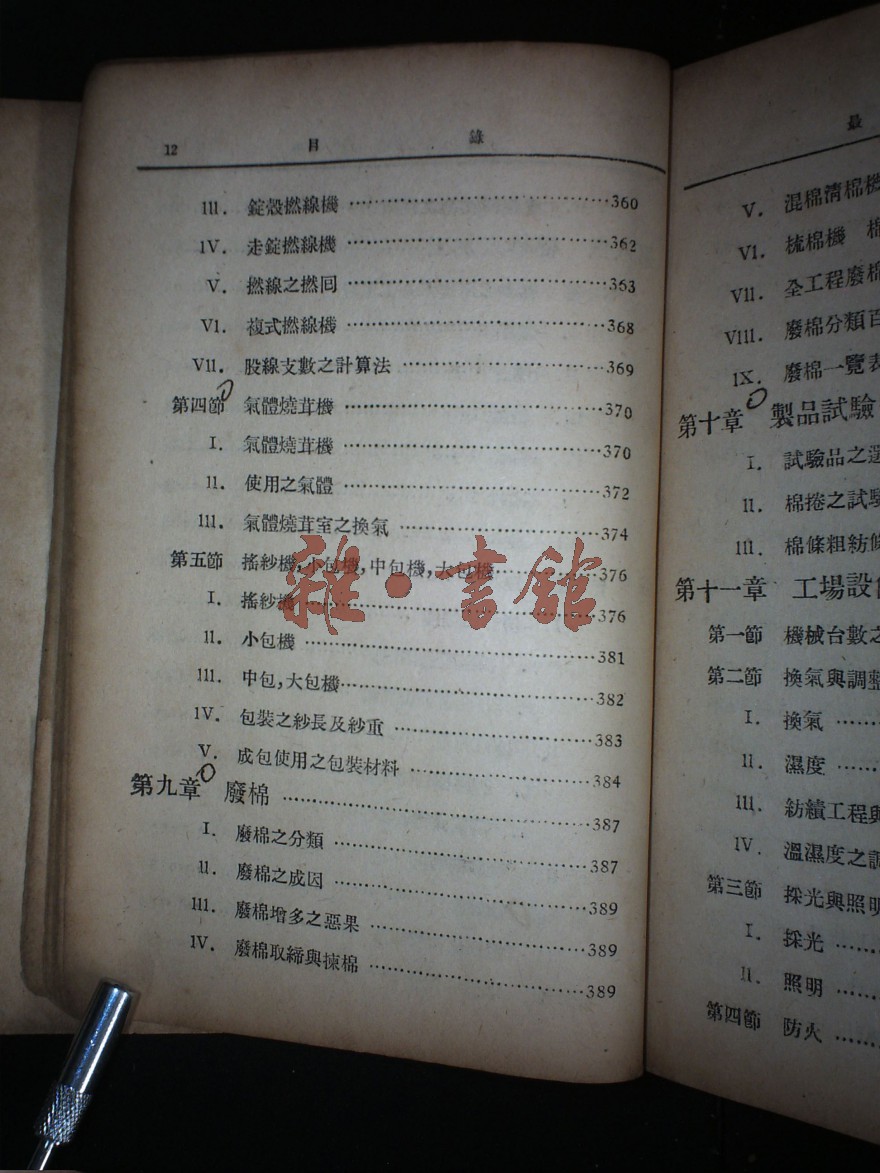 12 目 錄
III. 錠殼撚線機 360
IV. 走錠撚線機 362
V. 撚線之撚回 363
VI. 複式撚線機 368
VII. 股線支數之計算法 369
第四節 氣體燒茸機 370
I. 氣體燒茸機 370
II. 使用之氣體 372
III. 氣體燒茸室之換氣 374
第五節 搖紗機,小包機,中包機,大包機 376
I. 搖紗機 376
II. 小包機 381
III. 中包,大包機 382
IV. 包裝之紗長及紗重 383
V. 成包使用之包裝材料 384
第九章 廢棉 387
I. 廢棉之分類 387
II. 廢棉之成因 389
III. 廢棉增多之惡果 389
IV. 廢棉取締與揀棉 389
雜·書館
最
V. 混棉清棉機
VI. 梳棉機 棉
VII. 全工程廢棉
VIII. 廢棉分類百
IX. 廢棉一覽表
第十章 製品試驗
I. 試驗品之選
II. 棉捲之試驗
III. 棉條粗紡條
第十一章 工場設備
第一節 機械台數之
第二節 換氣與調整
I. 換氣
II. 濕度
III. 紡績工程與
IV. 溫濕度之調
第三節 採光與照明
I. 採光
II. 照明
第四節 防火